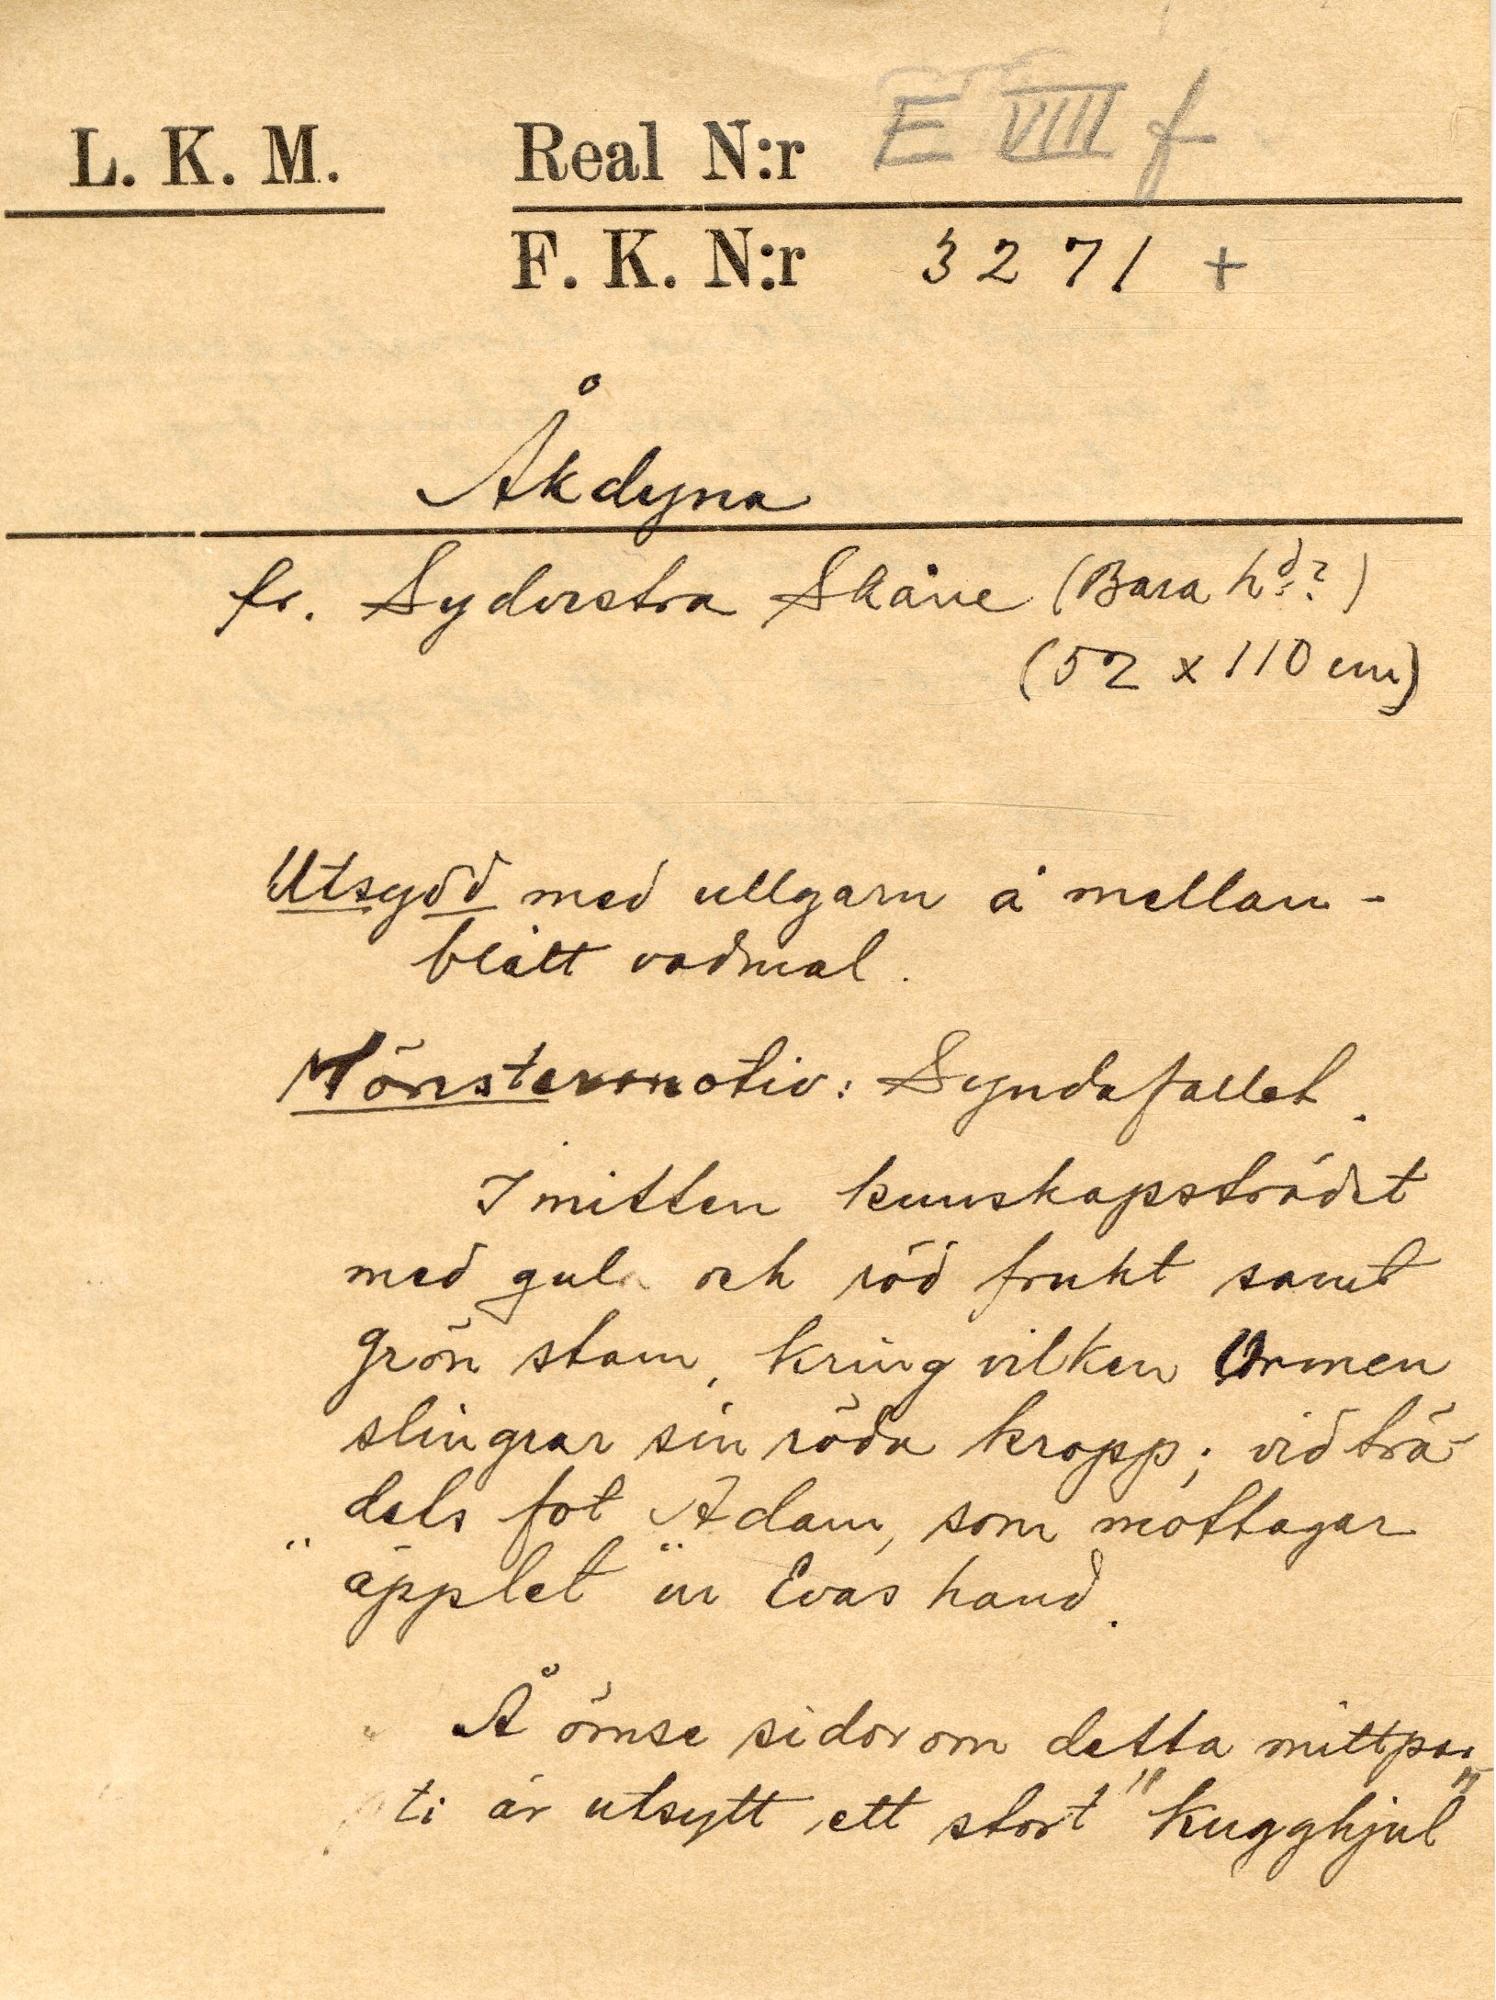 L. K. M. Real N:r E VIII f
F. K. N:r 3271 +
Åkdyna
fr. Sydvestra Skåne (Bara hd?)
(52 x 110 cm)
Utsydd med ullgarn å mellan-
blått vadmal.
Mönstermotiv: Syndafallet.
I mitten kunskapsträdet
med gula och röd frukt samt
grön stam, kring vilken Ormen
slingrar sin röda kropp; vid trä-
dets fot Adam, som mottagar
äpplet ur Evas hand.
Å ömse sidor om detta mittpar-
ti är utsytt ett stort "kugghjul"